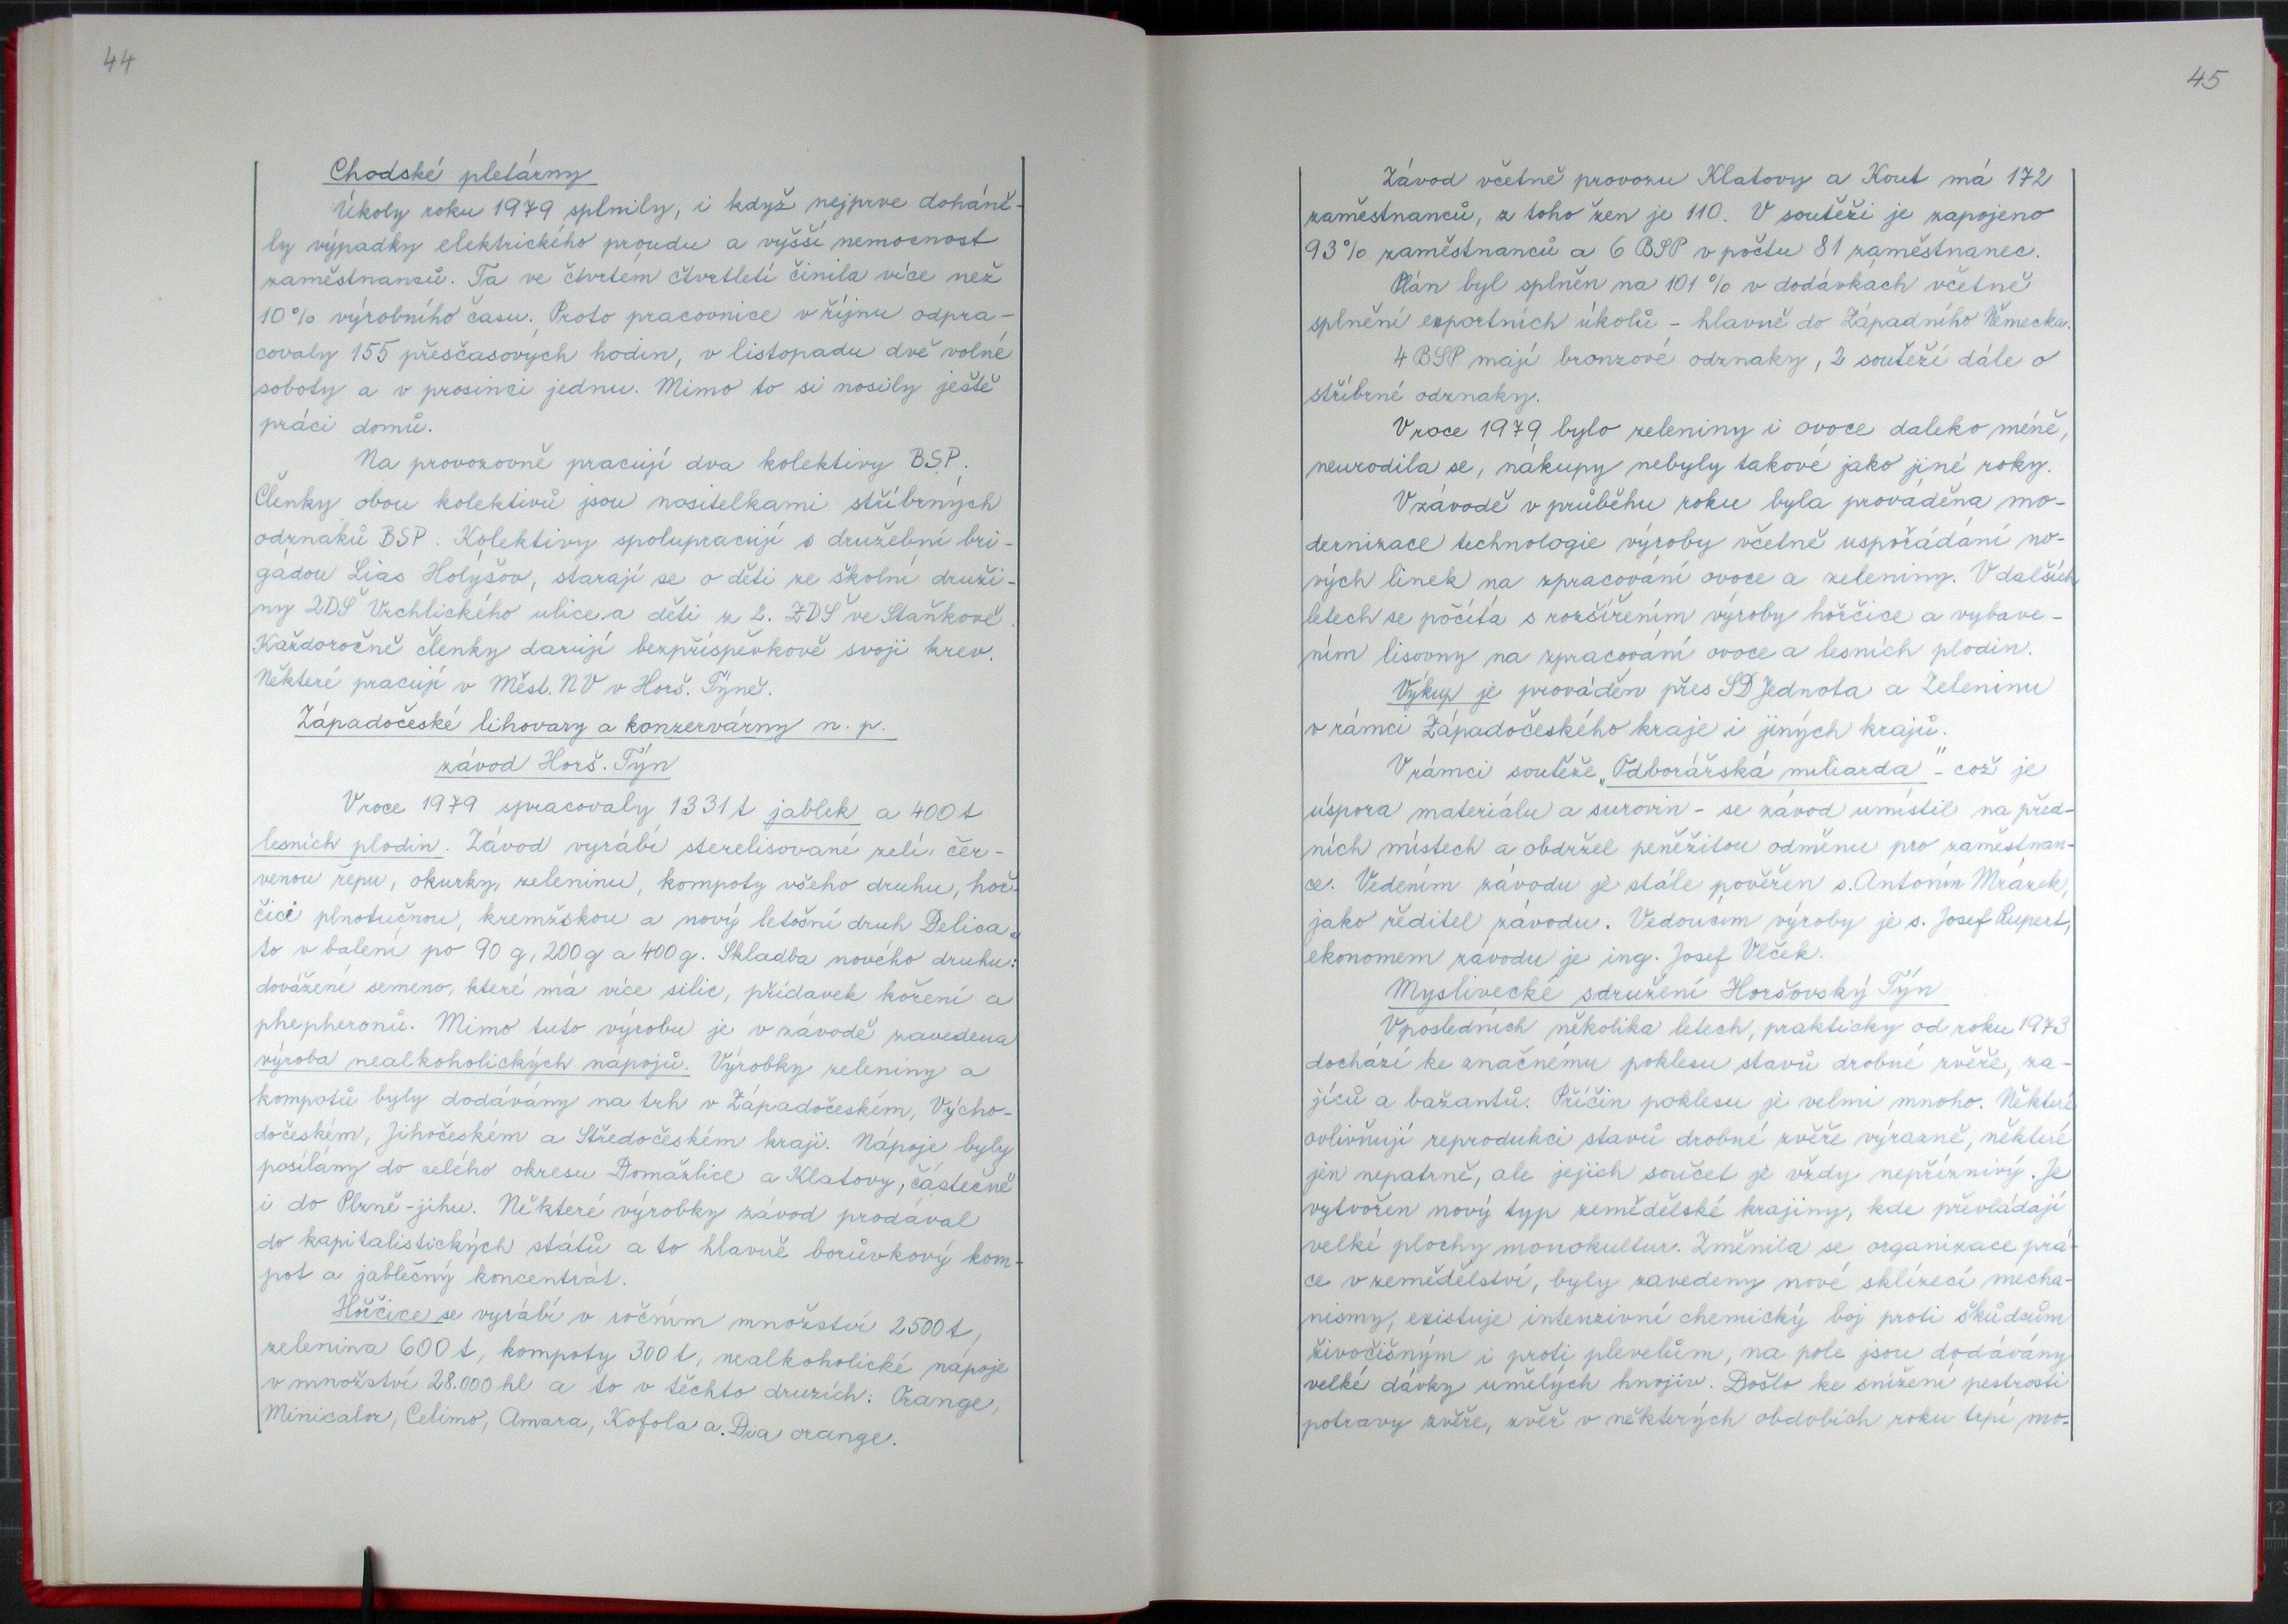 44
Chodské pletárny
Úkoly roku 1979 splnily, i když nejprve doháně-
ly výpadky elektrického proudu a vyšší nemocnost
zaměstnanců. Ta ve čtvrtém čtvrtletí činila více než
10% výrobního času. Proto pracovnice v říjnu odpra-
covaly 155 přesčasových hodin, v listopadu dvě volné
soboty a v prosinci jednu. Mimo to si nosily ještě
práci domů.
Na provozovně pracují dva kolektivy BSP.
Členky obou kolektivů jsou nositelkami stříbrných
odznaků BSP. Kolektivy spolupracují s družební bri-
gádou Lias Holýšov, starají se o děti ze školní druži-
ny ZDŠ Vrchlického ulice a děti z 2. ZDŠ ve Staňkově.
Každoročně členky darují bezpříspěvkově svoji krev.
Některé pracují v Měst. NV v Horš. Týně.
Západočeské lihovary a konzervárny n. p.
závod Horš. Týn
V roce 1979 zpracovaly 1331 t jablek a 400 t
lesních plodin. Závod vyrábí sterelisované zelí, čer-
venou řepu, okurky, zeleninu, kompoty všeho druhu, hoř-
čici plnotučnou, kremžskou a nový letošní druh Delica
to v balení po 90 g, 200 g a 400 g. Skladba nového druhu:
dovážené semeno, které má více silic, přídavek koření a
phepheronů. Mimo tuto výrobu je v závodě zavedena
výroba nealkoholických nápojů. Výrobky zeleniny a
kompotů byly dodávány na trh v Západočeském, Výcho-
dočeském, Jihočeském a Středočeském kraji. Nápoje byly
posílány do celého okresu Domažlice a Klatovy, částečně
i do Plzně-jihu. Některé výrobky závod prodával
do kapitalistických států a to hlavně borůvkový kom-
pot a jablečný koncentrát.
Hořčice se vyrábí v ročním množství 2500 t,
zelenina 600 t, kompoty 300 t, nealkoholické nápoje
v množství 28.000 hl a to v těchto druzích: Orange,
Minicalor, Celimo, Amara, Kofola a Dia orange.
45
Závod včetně provozu Klatovy a Kout má 172
zaměstnanců, z toho žen je 110. V soutěži je zapojeno
93% zaměstnanců a 6 BSP v počtu 81 zaměstnanec.
Plán byl splněn na 101 % v dodávkách včetně
splnění exportních úkolů - hlavně do Západního Německa.
4 BSP mají bronzové odznaky, 2 soutěží dále o
stříbrné odznaky.
V roce 1979 bylo zeleniny i ovoce daleko méně,
neurodila se, nákupy nebyly takové jako jiné roky.
V závodě v průběhu roku byla prováděna mo-
dernizace technologie výroby včetně uspořádání no-
vých linek na zpracování ovoce a zeleniny. V dalších
letech se počítá s rozšířením výroby hořčice a vybave-
ním lisovny na zpracování ovoce a lesních plodin.
Výkup je prováděn přes SD Jednota a Zeleninu
v rámci Západočeského kraje i jiných krajů.
V rámci soutěže „Odborářská miliarda" - což je
úspora materiálu a surovin - se závod umístil na před-
ních místech a obdržel peněžitou odměnu pro zaměstnan-
ce. Vedením závodu je stále pověřen s. Antonín Mrázek,
jako ředitel závodu. Vedoucím výroby je s. Josef Rupert,
ekonomem závodu je ing. Josef Vlček.
Myslivecké sdružení Horšovský Týn
V posledních několika letech, prakticky od roku 1973
dochází ke značnému poklesu stavů drobné zvěře, za-
jíců a bažantů. Příčin poklesu je velmi mnoho. Některé
ovlivňují reprodukci stavů drobné zvěře výrazně, některé
jen nepatrně, ale jejich součet je vždy nepříznivý. Je
vytvořen nový typ zemědělské krajiny, kde převládají
velké plochy monokultur. Změnila se organizace prá-
ce v zemědělství, byly zavedeny nové sklízecí mecha-
nismy, existuje intenzivní chemický boj proti škůdcům
živočišným i proti plevelům, na pole jsou dodávány
velké dávky umělých hnojiv. Došlo ke snížení pestrosti
potravy zvěře, zvěř v některých obdobích roku trpí mo-